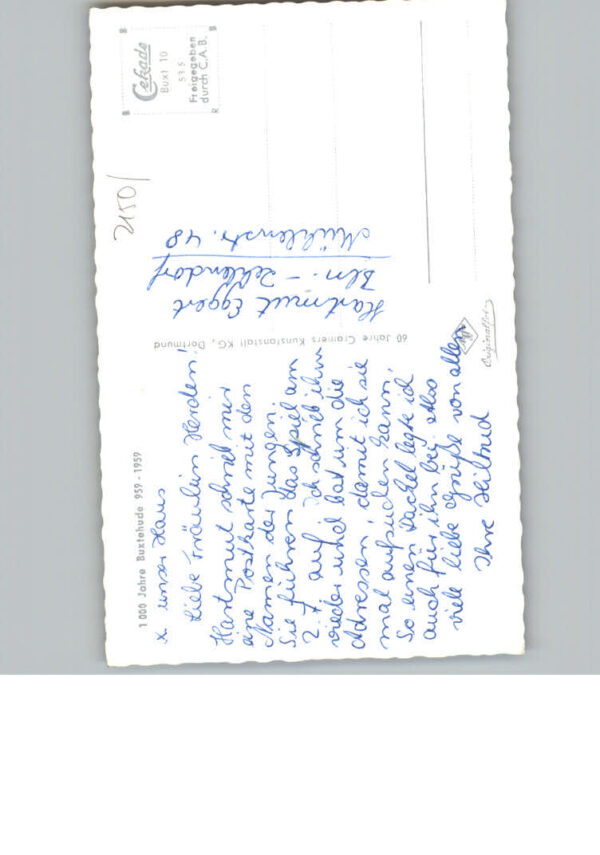 1000 Jahre Buxtehude 959 - 1959
x unser Haus
Liebe Fräulein Herden!
Hartmut schrieb mir
eine Postkarte mit den
Namen der Jungen.
Sie führen das Spiel am
2. 7. auf. Ich schrieb ihm
wieder und bat um die
Adressen, damit ich sie
mal aufsuchen kann.
So einen Zettel legte ich
auch für ihn bei. Also
viele liebe Grüße von allem
Ihre Heiltrud
60 Jahre Cramers Kunstanstalt KG, Dortmund
Hartmut Eggert
Bln. - Zehlendorf
Mühlenstr. 48
2150/
Cekade
Buxt 10
535
Freigegeben
durch C.A.B.
B
B
R
Originalfoto